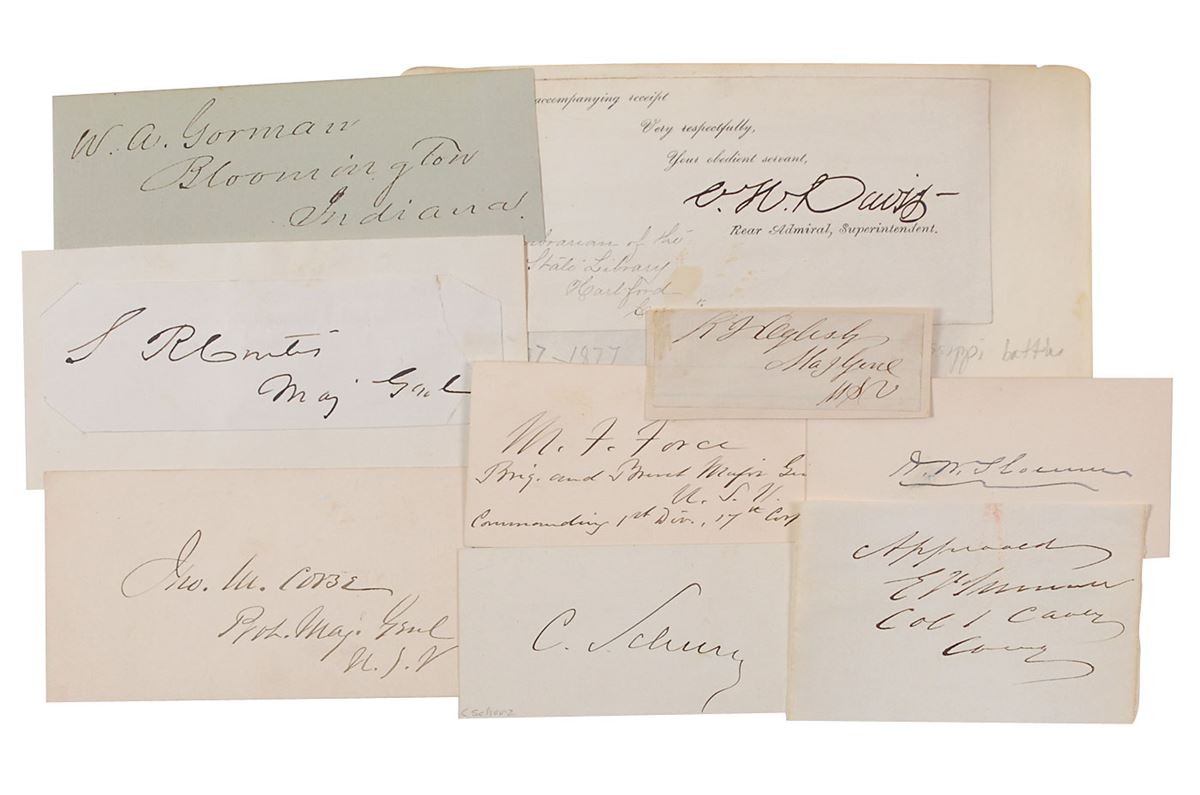 W. A. Gorman
Bloomington
Indiana.
accompanying receipt
Very respectfully,
Your obedient servant,
C. H. Davis
Rear Admiral, Superintendent.
of the
State Library
Hartford
1877
battles
S R Curtis
Maj Genl
Maj Genl
USV
M. F. Force
Brig. and Brevet Major Gen
U. S. V.
Commanding 1st Div., 17th Corp
H. W. Slocum
Jno. M. Corse
Bvt. Maj. Genl
U. S. V
C. Schurz
C Schurz
Approved
E V Sumner
Col 1 Cavy
Comg